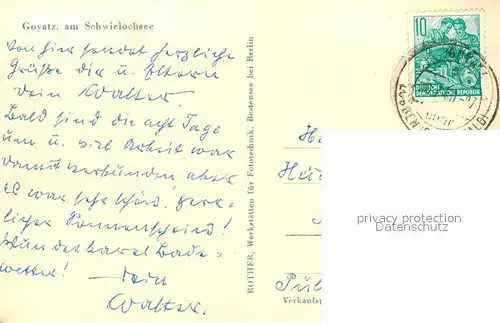 Goyatz, am Schwielochsee
Von hier sendet herzliche
Grüße dir u. Eltern
dein Walter.
Bald sind die acht Tage
um u. viel Arbeit war
damit verbunden aber
es war sehr schön! herr-
licher Sonnenschein!
Wunderbares Bade-
wetter! Dein
Walter.
ROTHER, Werkstätten für Fototechnik, Bestensee bei Berlin
10
DEUTSCHE
DEMOKRATISCHE REPUBLIK
privacy protection
Datenschutz
Verkaufsp